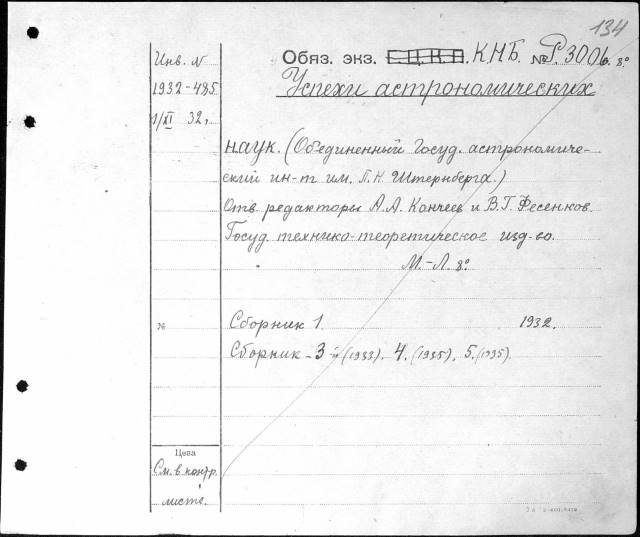 134
Инв. №
1932-485
1/XI 32,
Обяз. экз. Е.Ц.К.П. К.Н.Б. № Р.3006. 8°
Успехи астрономических
наук. (Объединенный Госуд. астрономиче-
ский ин-т им. П.К. Штернберга.)
Отв. редакторы А.А. Канчеев и В.Г. Фесенков.
Госуд. технико-теоретическое изд-во.
М.-Л. 8°
№ Сборник 1. 1932.
Сборник - 3-й (1933). 4. (1935). 5. (1935).
Цена
См. в контр.
листе.